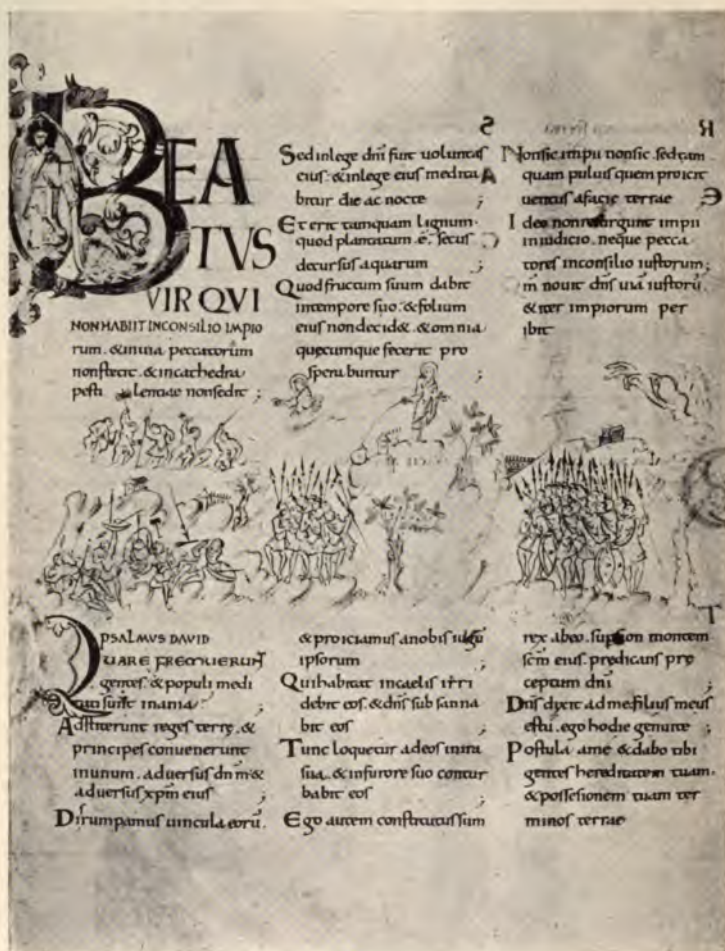 BEA
TVS
VIR QVI
NON HABIIT IN CONSILIO IMPIO
rum. & in uia peccatorum
non stetit. & in cathedra
pesti lentiae non sedit ;
Sed in lege dni fuit uoluntas
eius. & in lege eius medita
bitur die ac nocte
Et erit tamquam lignum.
quod plantatum .e. secus
decursus aquarum ;
Quod fructum suum dabit
in tempore suo. & folium
eius non decid&. & omnia
quecumque fecerit pro
sperabuntur ;
Non sic impii non sic. sed tam
quam puluis quem proicit
uentus a facie terrae
Ideo non resurgunt impii
in iudicio. neque pecca
tores in consilio iustorum ;
m nouit dns uiā iustorū.
& iter impiorum per
ibit
PSALMVS DAVID
QUARE FREMUERUNT
gentes. & populi medi
sunt inania ?
Adstiterunt reges terre. &
principes conuenerunt
in unum. aduersus dnm &
aduersus xpm eius ;
Dirumpamus uincula eorū.
& proiciamus a nobis iugū
ipsorum
Qui habitat in caelis irri
debit eos. & dns subsanna
bit eos ;
Tunc loquetur ad eos in ira
sua. & in furore suo contur
babit eos ;
Ego autem constitutus sum
rex ab eo. sup sion montem
scm eius. predicans pre
ceptum dni ;
Dns dixit ad me filius meus
es tu. ego hodie genui te ;
Postula a me & dabo tibi
gentes hereditatem tuam.
& possesionem tuam ter
minos terrae